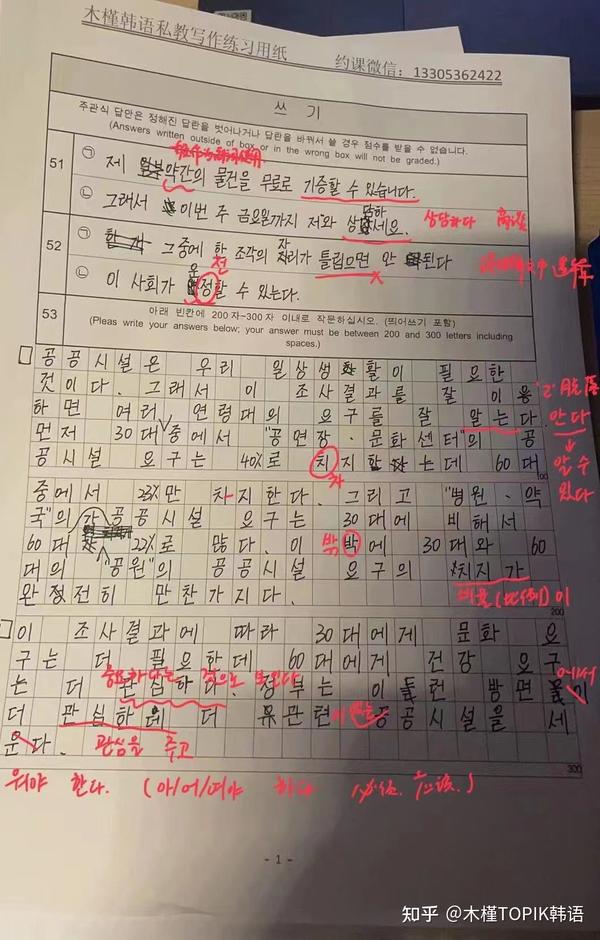 木槿韩语私教写作练习用纸 约课微信：13305362422
쓰 기
주관식 답안은 정해진 답란을 벗어나거나 답란을 바꿔서 쓸 경우 점수를 받을 수 없습니다.
(Answers written outside of box or in the wrong box will not be graded.)
51
㉠ 제 약간의 물건을 무료로 기증할 수 있습니다.
㉡ 그래서 이번 주 금요일까지 저와 상담하세요. 상담하다
52
㉠ 그중에 한 조각의 자리가 틀립으면 안 된다
㉡ 이 사회가 운전할 수 있는다.
53
아래 빈칸에 200자~300자 이내로 작문하십시오. (띄어쓰기 포함)
(Pleas write your answers below; your answer must be between 200 and 300 letters including
spaces.)
공공시설은 우리 일상생활이 필요한
것이다. 그래서 이 조사결과를 잘 이용
하면 여러 연령대의 요구를 잘 알는다. 안다
먼저 30대 중에서 "공연장·문화센터"의 공
공시설 요구는 40%로 치지하는데 60대 알 수
차
있다
100
중에서 23%만 차지한다. 그리고 "병원·약
국"의 공공시설 요구는 30대에 비해서
60대 22%로 많다. 이 밖에 30대와 60
대의 "공원"의 공공시설 요구의 치지가
비율(比例)이
완전히 만찬가지다.
200
이 조사결과에 따라 30대에게 문화 요
구는 더 필요한데 60대에게 건강 요구
는 더 관심하다. 정부는 이 방면 에서
더 관심하며 더 관련 이 있는 공공시설을 세
운다. 관심을 주고
300
워야 한다. (아/어/여야 하다 应该.)
- 1 -
知乎 @木槿TOPIK韩语